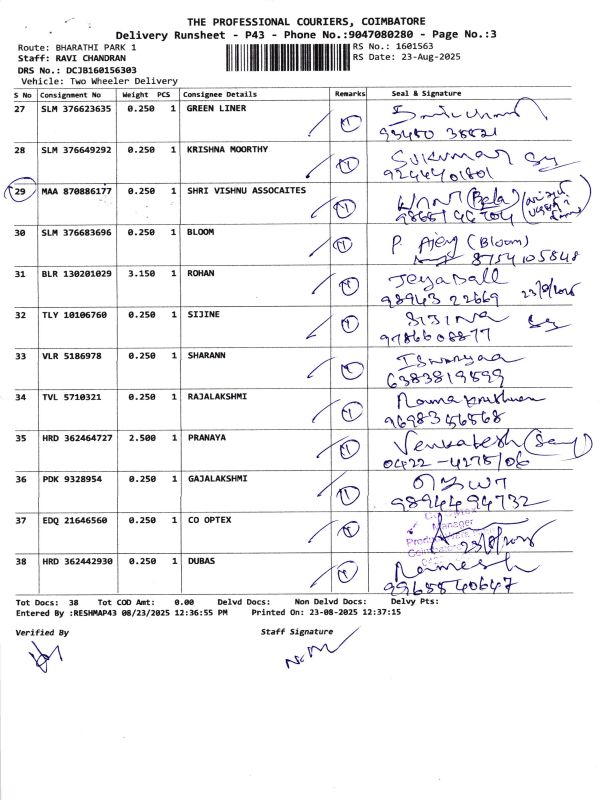 THE PROFESSIONAL COURIERS, COIMBATORE
Delivery Runsheet - P43 - Phone No.:9047080280 - Page No.:3
Route: BHARATHI PARK 1
RS No.: 1601563
Staff: RAVI CHANDRAN
RS Date: 23-Aug-2025
DRS No.: DCJB160156303
Vehicle: Two Wheeler Delivery
S No Consignment No Weight PCS Consignee Details Remarks Seal & Signature
27 SLM 376623635 0.250 1 GREEN LINER
28 SLM 376649292 0.250 1 KRISHNA MOORTHY Sukumar
9244401801
29 MAA 870886177 0.250 1 SHRI VISHNU ASSOCAITES (Bela)
30 SLM 376683696 0.250 1 BLOOM P. Ajay (Bloom)
8754105848
31 BLR 130201029 3.150 1 ROHAN Jeyaball
98943 22669 23/8/2025
32 TLY 10106760 0.250 1 SIJINE SIJINA
9786608877
33 VLR 5186978 0.250 1 SHARANN Iswaryaa
6383819599
34 TVL 5710321 0.250 1 RAJALAKSHMI Ramakrishnan
9698356568
35 HRD 362464727 2.500 1 PRANAYA Venkatesh
0422-4275106
36 PDK 9328954 0.250 1 GAJALAKSHMI
9894494732
37 EDQ 21646560 0.250 1 CO OPTEX Manager
23/8/2025
38 HRD 362442930 0.250 1 DUBAS Ramesh
9965540647
Tot Docs: 38 Tot COD Amt: 0.00 Delvd Docs: Non Delvd Docs: Delvy Pts:
Entered By :RESHMAP43 08/23/2025 12:36:55 PM Printed On: 23-08-2025 12:37:15
Verified By Staff Signature